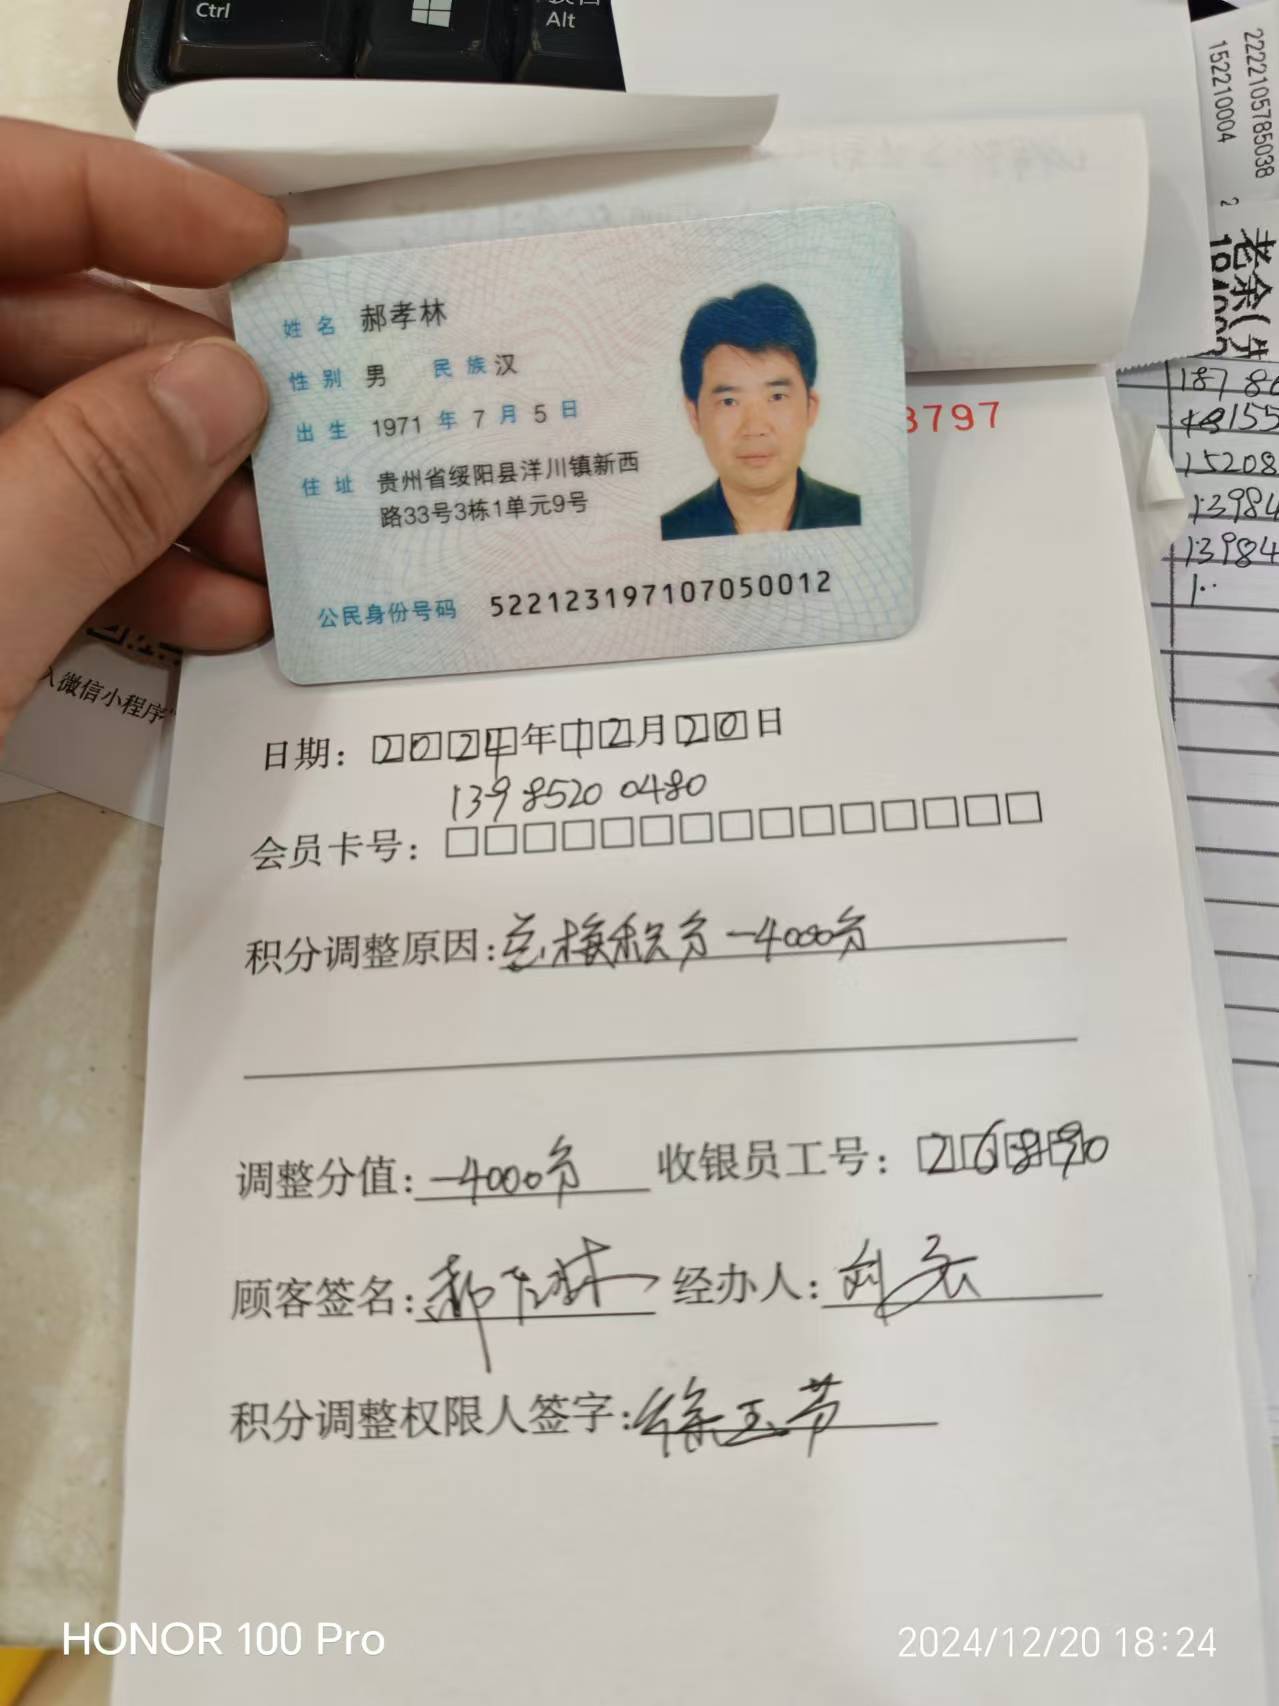 Ctrl
Alt
2222105785038
152210004
2
老余(
姓名 郝孝林
性别 男 民族 汉
出生 1971 年 7 月 5 日
住址 贵州省绥阳县洋川镇新西
路33号3栋1单元9号
公民身份号码 522123197107050012
3797
187 8
155
15208
13984
13984
1..
入微信小程序
日期: 2024年12月20日
139 8520 0480
会员卡号:
积分调整原因: 兑换积分-4000分
调整分值: -4000分 收银员工号: 26890
顾客签名: 郝孝林 经办人:
积分调整权限人签字: 徐玉芬
HONOR 100 Pro
2024/12/20 18:24